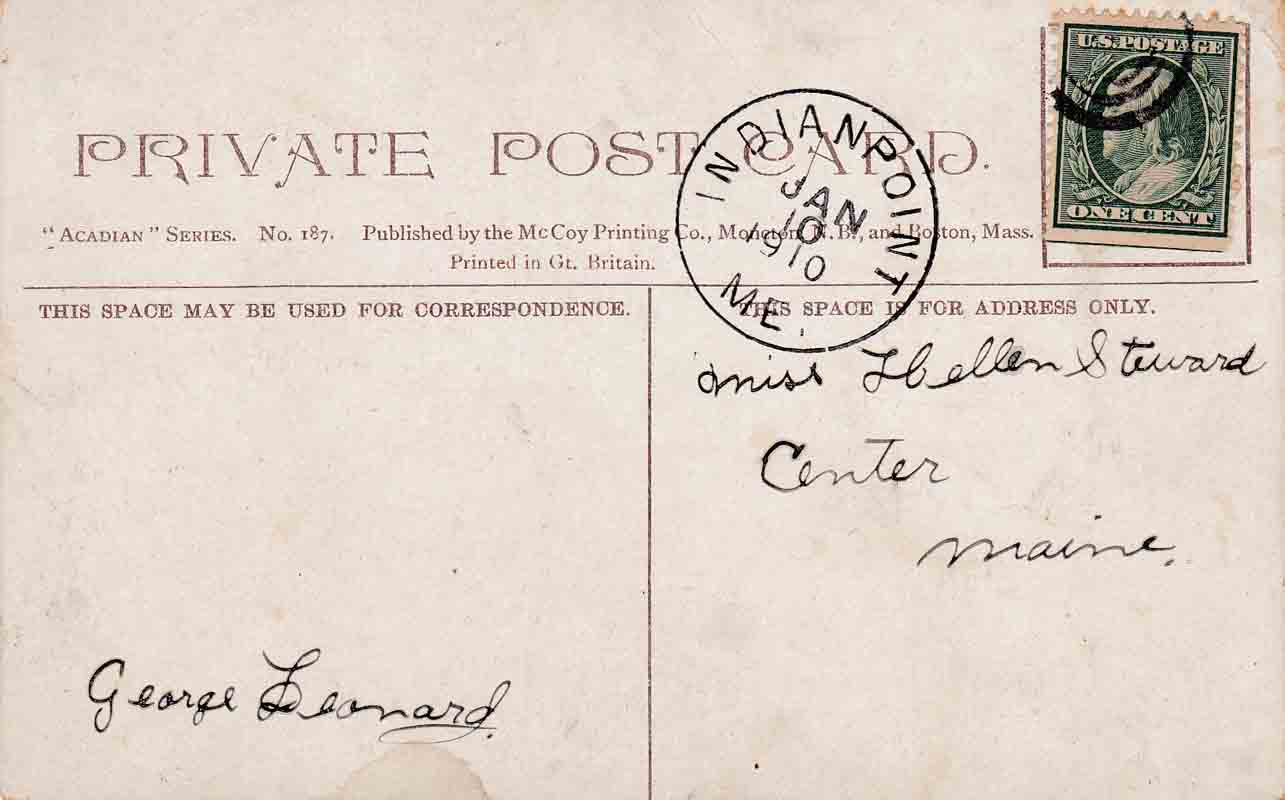 PRIVATE POST CARD.
"ACADIAN" SERIES. No. 187. Published by the McCoy Printing Co., Moncton, N. B., and Boston, Mass.
Printed in Gt. Britain.
U.S. POSTAGE
ONE CENT
INDIAN POINT
JAN
10
1910
ME.
THIS SPACE MAY BE USED FOR CORRESPONDENCE.
THIS SPACE IS FOR ADDRESS ONLY.
Miss Hellen Steward
Center
Maine.
George Leonard